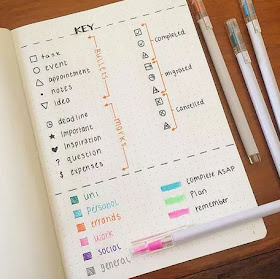 KEY
task
event
appointment
notes
idea
BULLETS
deadline
important
inspiration
? question
$ expenses
MARKS
completed
migrated
cancelled
uni
personal
errands
work
social
general
complete ASAP
plan
remember